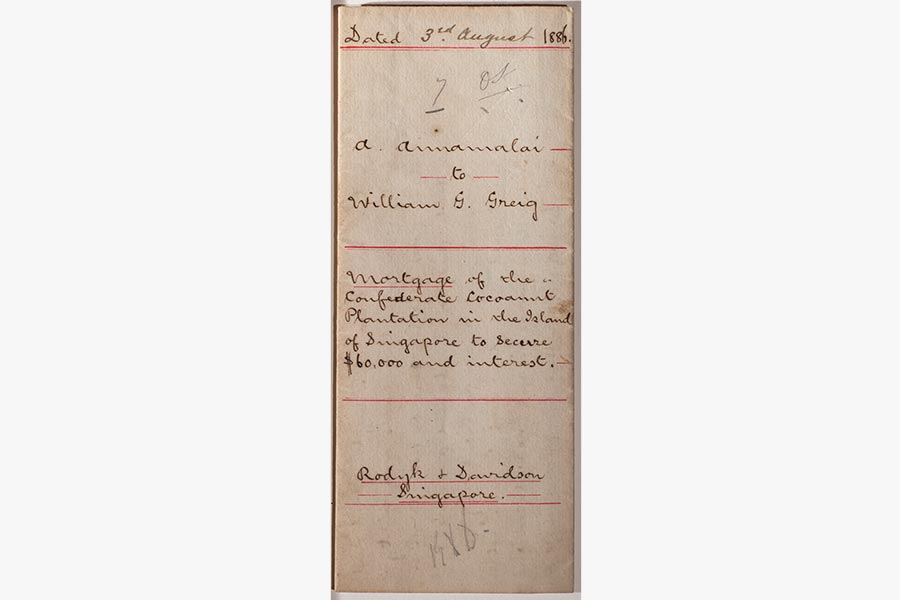 Dated 3rd August 1886.
7
A. Annamalai
to
William G. Greig
Mortgage of the
Confederate Cocoanut
Plantation in the Island
of Singapore to secure
$60,000 and interest.
Rodyk & Davidson
Singapore.